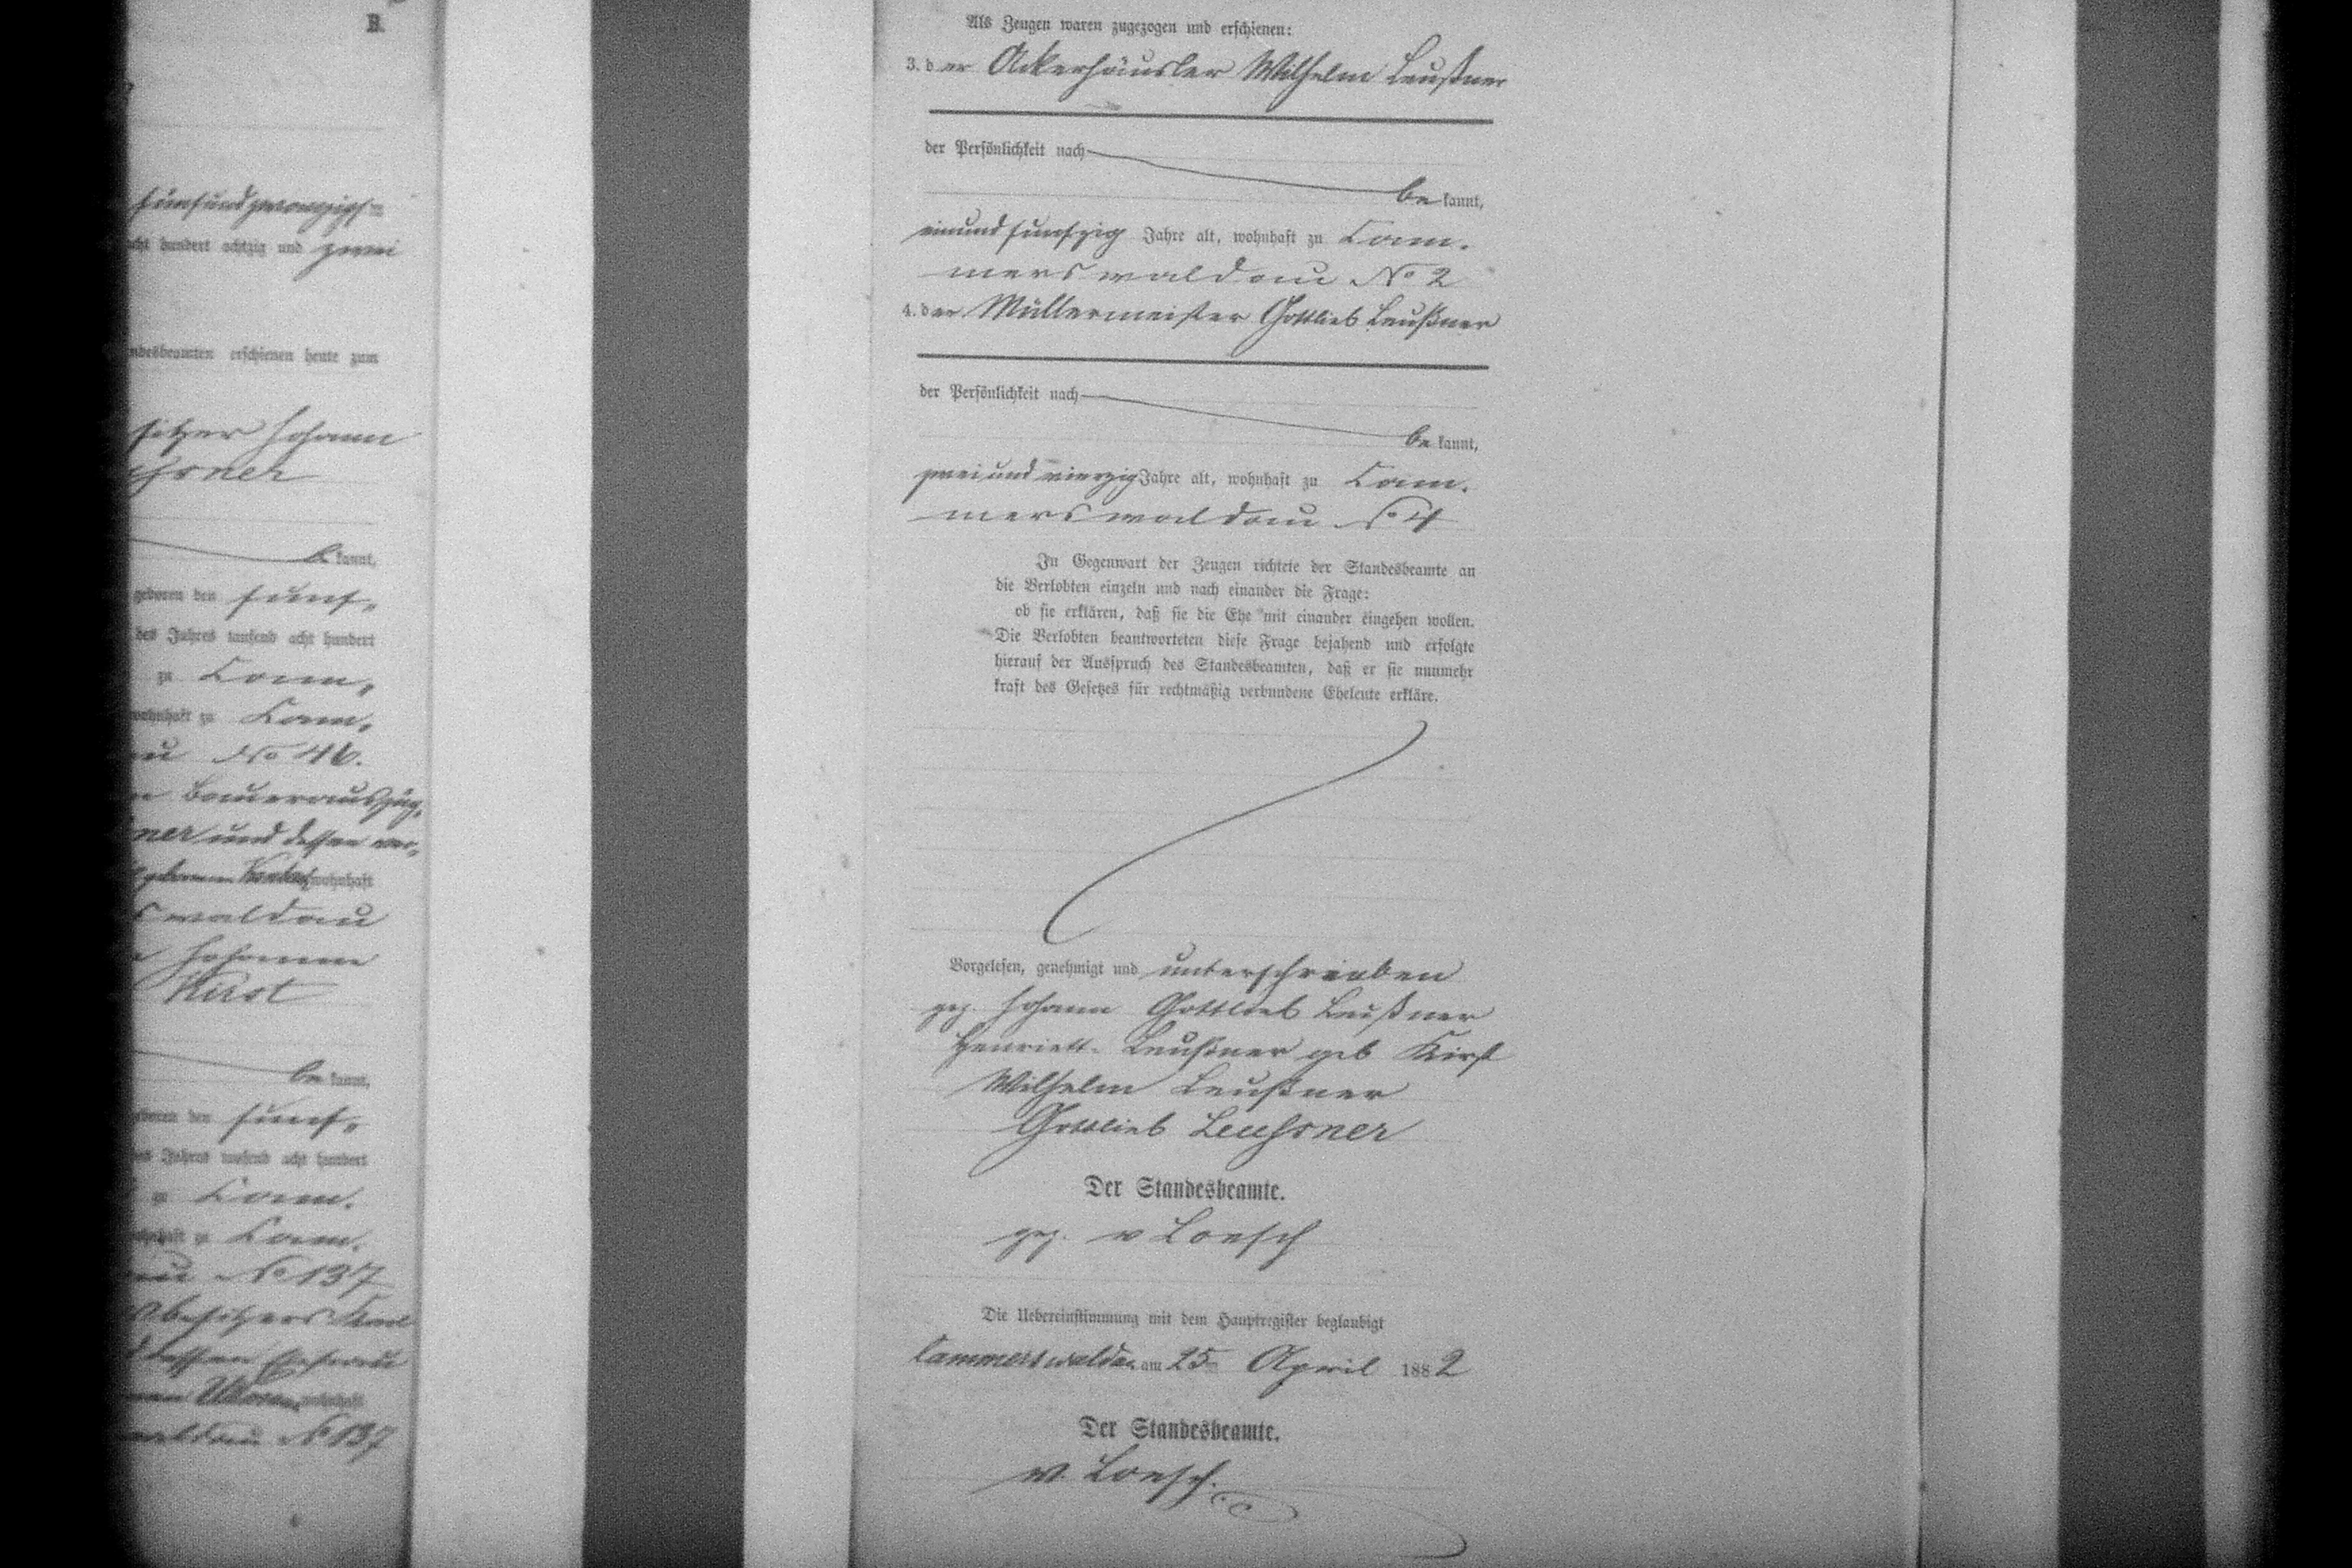 B.
fünfundzwanzigs=
acht hundert achtzig und zwei
Standesbeamten erschienen heute zum
sitzer Johann
kannt,
geboren den fünf,
des Jahres tausend acht hundert
zu Cam,
wohnhaft zu Cam,
au No 46.
Bauerauszüg,
ner und dessen ver,
geborenen wohnhaft
swaldau
Johanne
Kirst
be kannt,
geboren den fünf,
des Jahres tausend acht hundert
zu Cam.
wohnhaft zu Cam.
au No 137
besitzers Karl
dessen Ehefrau
waldau No 137
Als Zeugen waren zugezogen und erschienen:
3. der Ackerhäusler Wilhelm Leußner
der Persönlichkeit nach
be kannt,
einundfünfzig Jahre alt, wohnhaft zu Cam.
merswaldau No 2
4. der Müllermeister Gottlieb Leußner
der Persönlichkeit nach
be kannt,
zweiundvierzig Jahre alt, wohnhaft zu Cam.
merswaldau No 4
In Gegenwart der Zeugen richtete der Standesbeamte an
die Verlobten einzeln und nach einander die Frage:
ob sie erklären, daß sie die Ehe mit einander eingehen wollen.
Die Verlobten beantworteten diese Frage bejahend und erfolgte
hierauf der Ausspruch des Standesbeamten, daß er sie nunmehr
kraft des Gesetzes für rechtmäßig verbundene Eheleute erkläre.
Vorgelesen, genehmigt und unterschrieben
gez. Johann Gottlieb Leußner
Henriett. Leußner geb Kirst
Wilhelm Leußner
Gottlieb Leuhsner
Der Standesbeamte.
gez. v Loesch
Die Uebereinstimmung mit dem Hauptregister beglaubigt
Cammerswaldau am 25 April 1882
Der Standesbeamte.
v. Loesch.